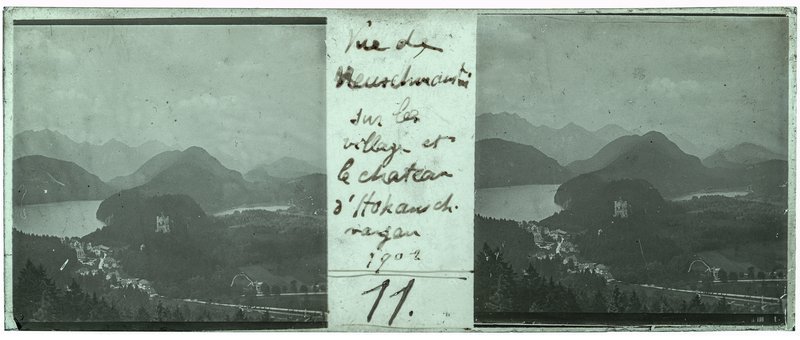 Vue de
Neuschwanstein
sur les
village et
le chateau
d'Hohansch-
vangau
1902
11.